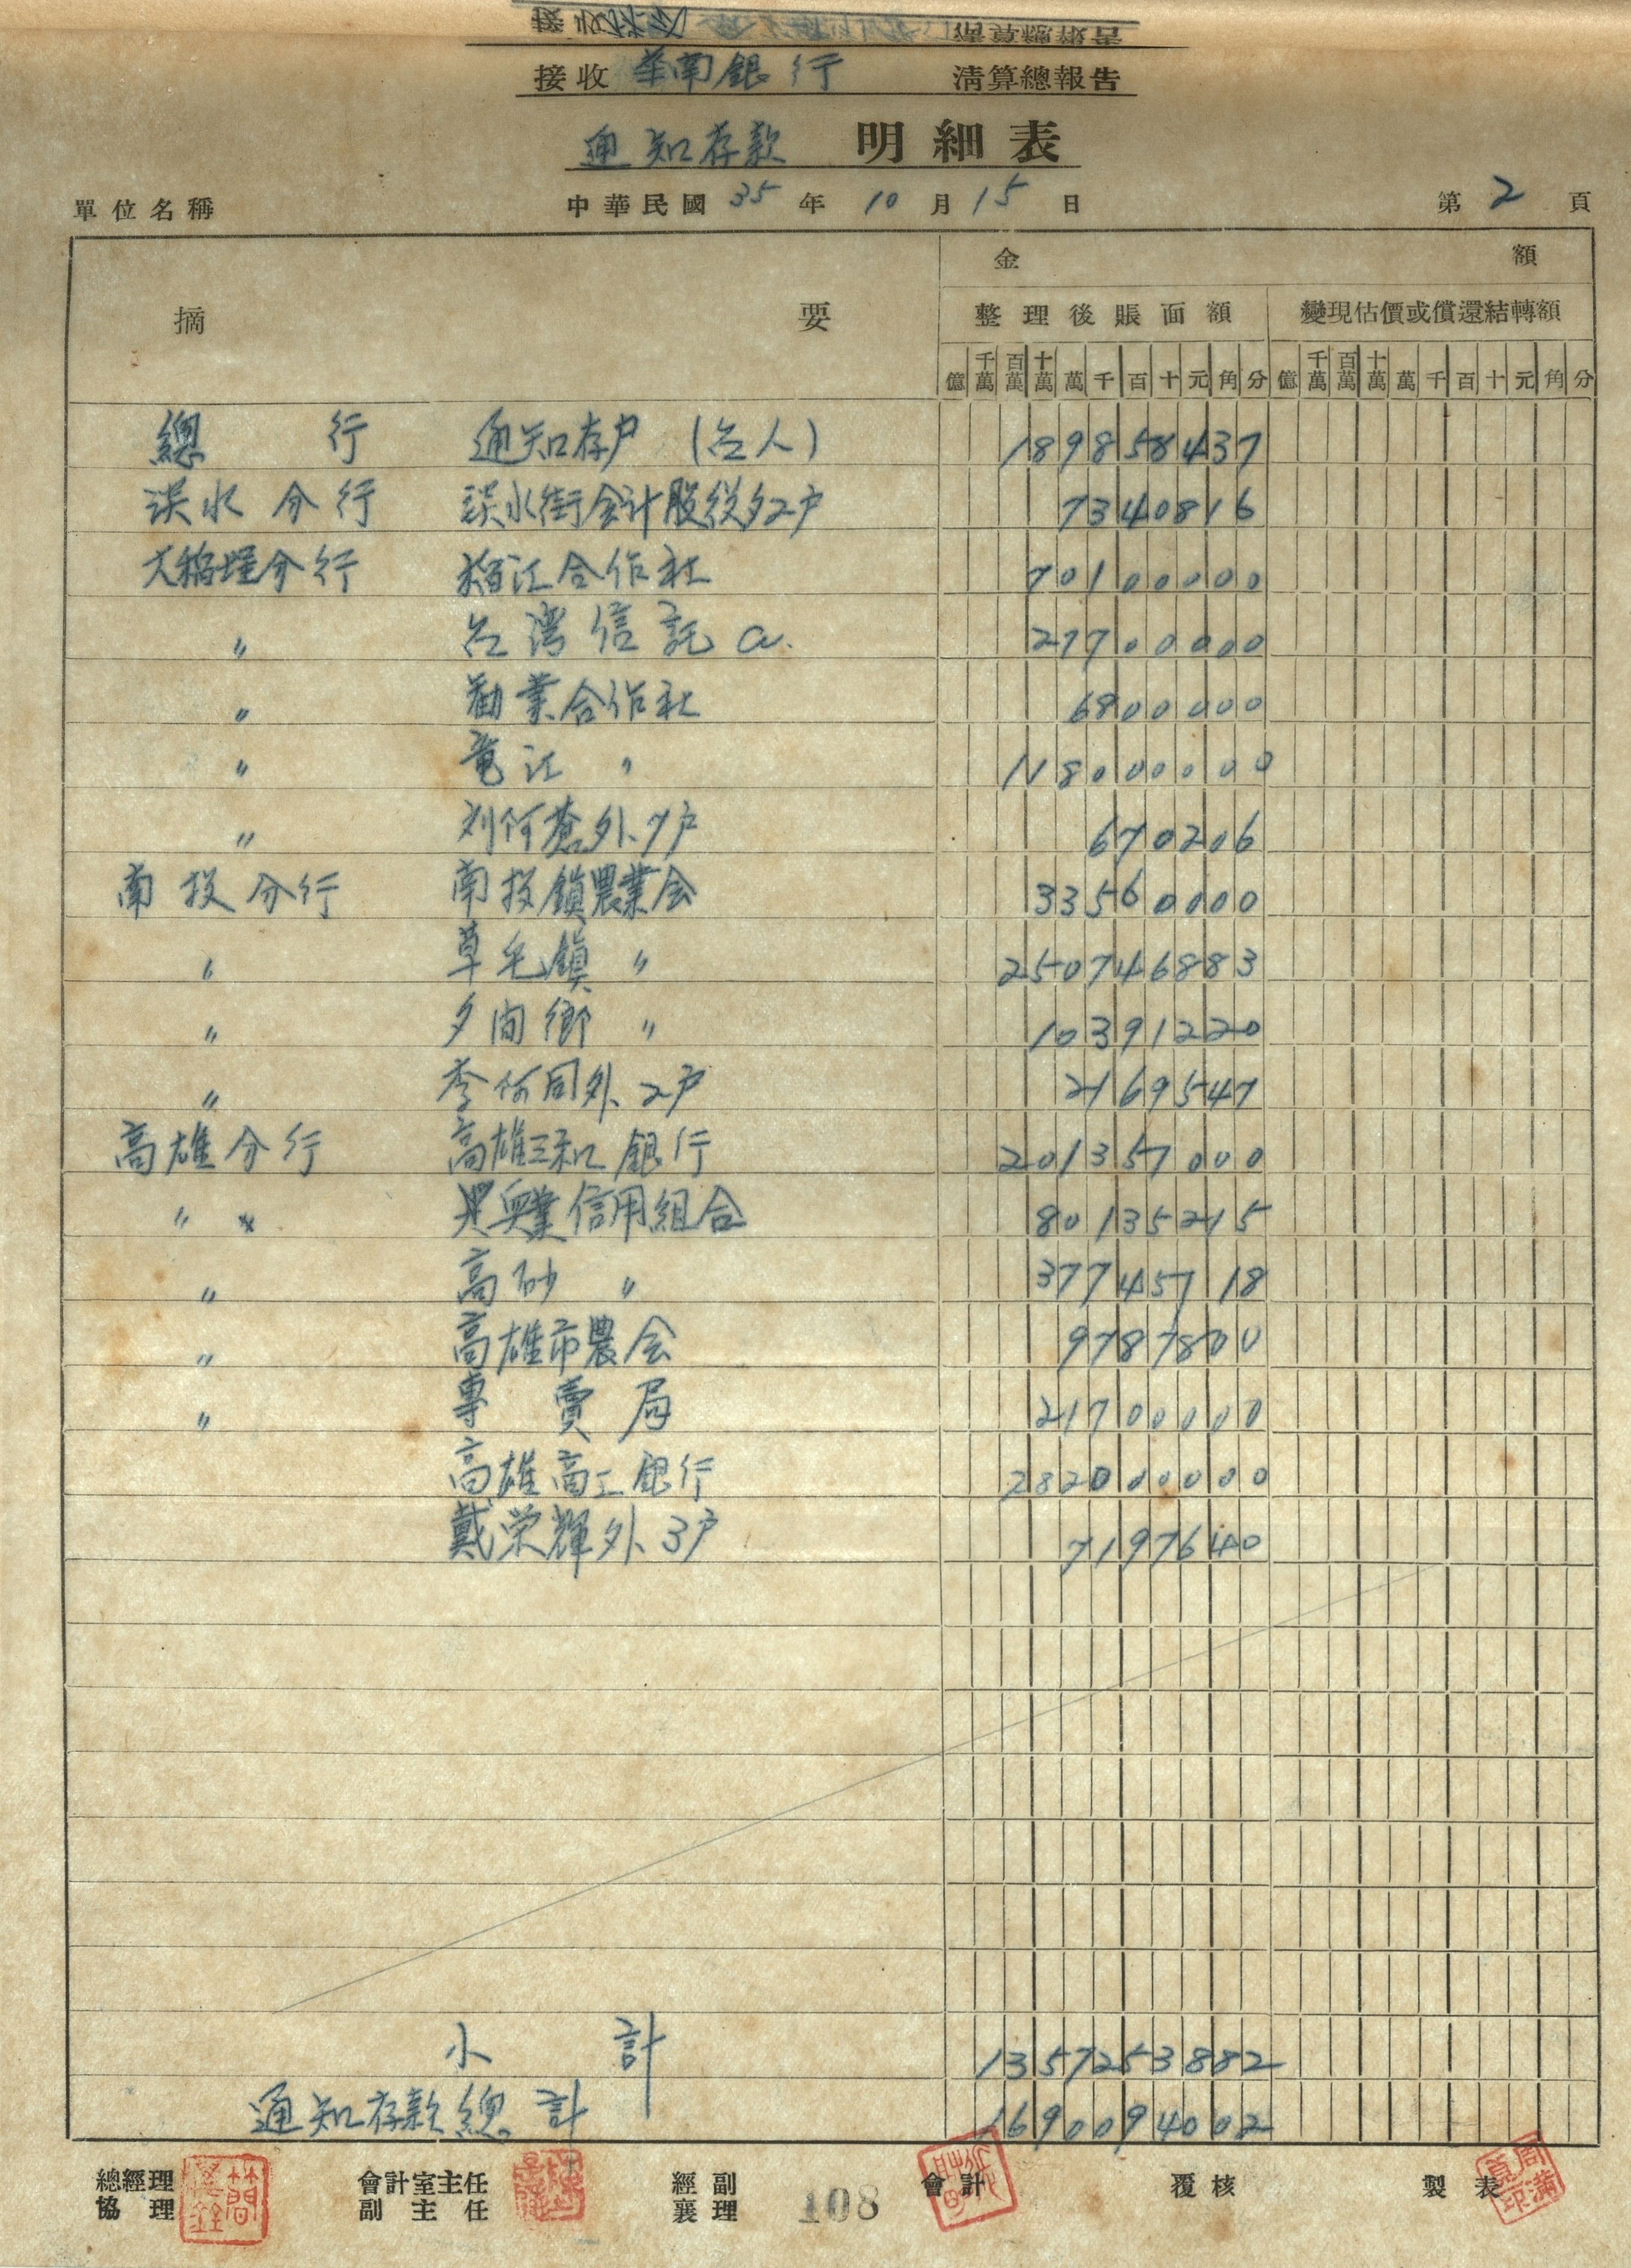 接收 華南銀行 清算總報告
通知存款 明細表
單位名稱 中華民國 35 年 10 月 15 日 第 2 頁
摘 要 金 額
整理後賬面額 變現估價或償還結轉額
億 千萬 百萬 十萬 萬 千 百 十 元 角 分 億 千萬 百萬 十萬 萬 千 百 十 元 角 分
總 行 通知存戶 (台人) 189858437
淡水分行 淡水街会计股後夕2户 7340816
大稻埕分行 稻江合作社 70100000
〃 台湾信託 a. 27700000
〃 勸業合作社 6800000
〃 竜江 〃 118000000
〃 刘何蒼外7户 670206
南投分行 南投鎮農業会 33560000
〃 草屯鎮 〃 250746883
〃 夕间鄉 〃 10391220
〃 李何同外2户 2169547
高雄分行 高雄三和銀行 201357000
〃 興業信用組合 80135215
〃 高砂 〃 37745718
〃 高雄市農会 9787800
〃 專賣局 21700000
高雄商工銀行 282000000
戴荣輝外3户 7197640
小 計 1357253882
通知存款總計 1690094002
總經理 會計室主任 經副 會計 覆核 製表
協理 副主任 襄理 108